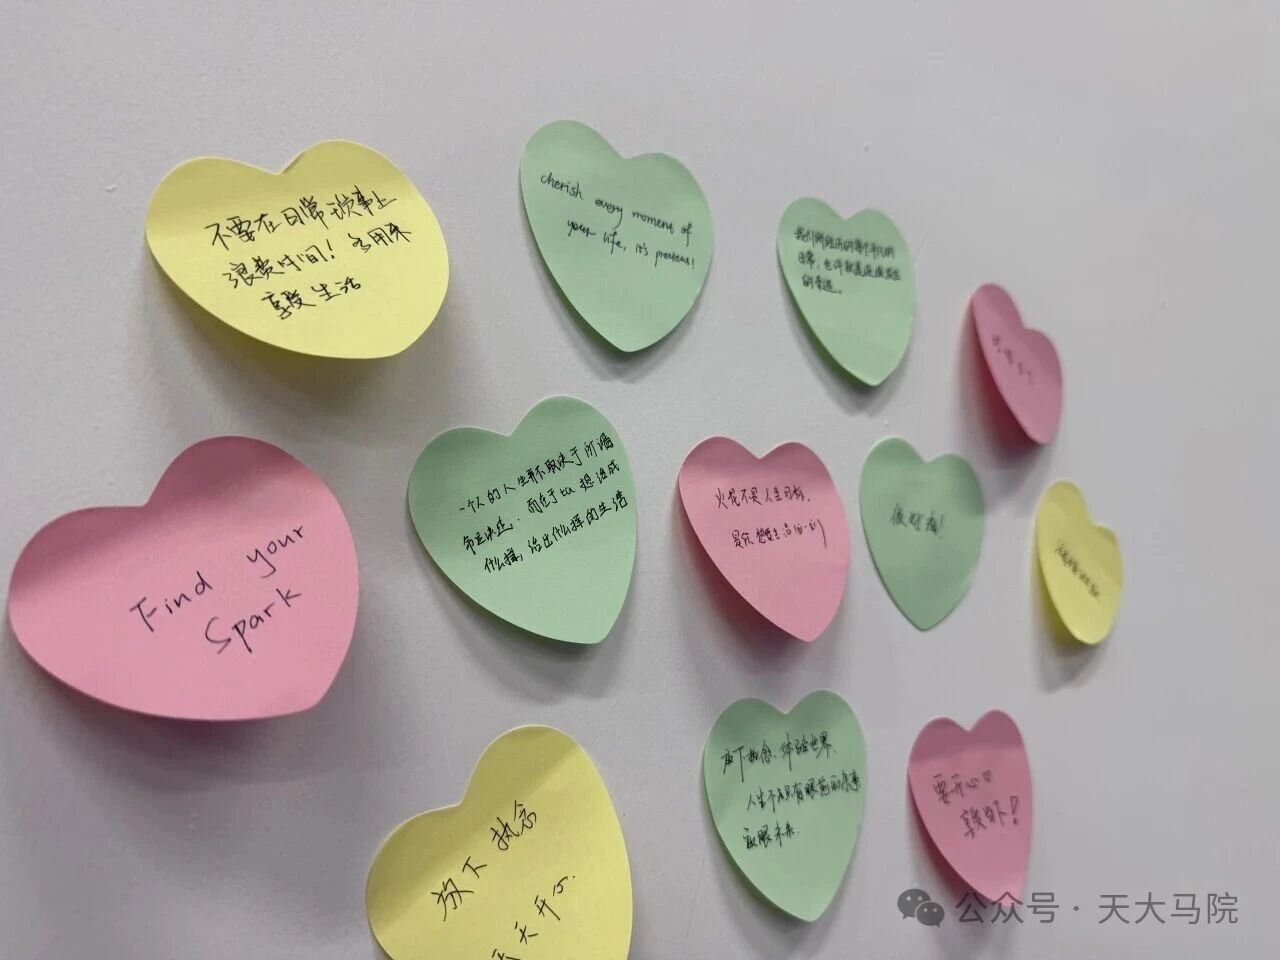 不要在日常琐事上
浪费时间！多用来
享受生活
cherish every moment of
your life, it's precious!
我们所经历的每个平凡的
日常，也许就是连续发生
的奇迹。
Find your
Spark
一个人的人生并不取决于所谓
命运决定，而在于他想活成
什么样，给出什么样的生活
火花不是人生目标，
是你想要生活的一刻
很好看！
放下执念，体验世界，
人生不只有眼前的
放眼未来.
要开心
享受当下！
放下执念
天天开心.
公众号 · 天大马院